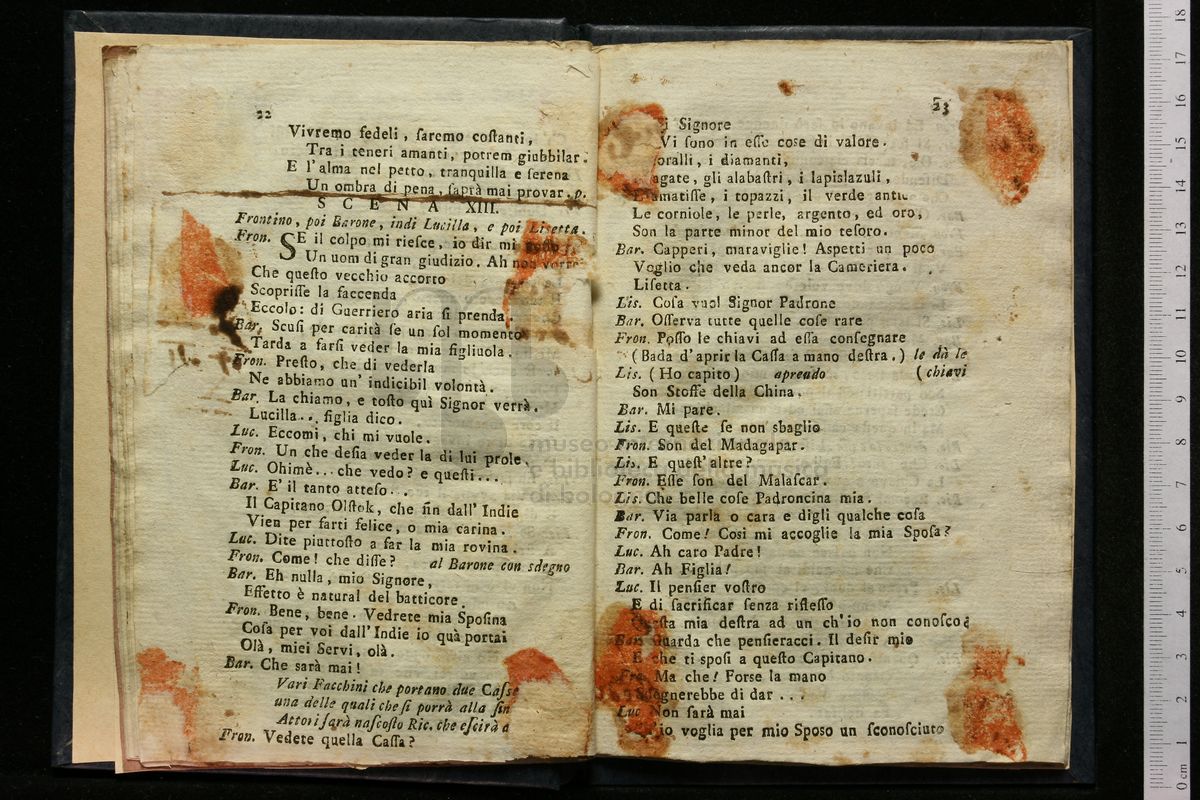 22
Vivremo fedeli, ſaremo coſtanti,
Tra i teneri amanti, potrem giubbilar.
E l'alma nel petto, tranquilla e ſerena
Un ombra di pena, ſaprà mai provar. p.
SCENA XIII.
Frontino, poi Barone, indi Lucilla, e poi Liſetta.
Fron. SE il colpo mi rieſce, io dir mi
Un uom di gran giudizio. Ah non vorre
Che queſto vecchio accorto
Scopriſſe la faccenda
Eccolo: di Guerriero aria ſi prenda.
Bar. Scuſi per carità ſe un ſol momento
Tarda a farſi veder la mia figliuola.
Fron. Preſto, che di vederla
Ne abbiamo un' indicibil volontà.
Bar. La chiamo, e toſto quì Signor verrà.
Lucilla... figlia dico.
Luc. Eccomi, chi mi vuole.
Fron. Un che deſia veder la di lui prole.
Luc. Ohimè... che vedo? e queſti...
Bar. E' il tanto atteſo...
Il Capitano Olſtok, che fin dall' Indie
Vien per farti felice, o mia carina.
Luc. Dite piuttoſto a far la mia rovina.
Fron. Come! che diſſe? al Barone con sdegno
Bar. Eh nulla, mio Signore,
Effetto è natural del batticore.
Fron. Bene, bene. Vedrete mia Spoſina
Coſa per voi dall' Indie io quà portai
Olà, miei Servi, olà.
Bar. Che sarà mai!
Vari Facchini che portano due Caſſe
una delle quali che ſi porrà alla fin
Attoriſarà naſcoſto Ric. che eſcirà a
Fron. Vedete quella Caſſa?
23
i Signore
Vi ſono in eſſe coſe di valore.
oralli, i diamanti,
agate, gli alabaſtri, i lapislazuli,
amatiſte, i topazzi, il verde antic
Le corniole, le perle, argento, ed oro,
Son la parte minor del mio teſoro.
Bar. Capperi, maraviglie! Aſpetti un poco
Voglio che veda ancor la Cameriera.
Liſetta.
Lis. Coſa vuol Signor Padrone
Bar. Oſſerva tutte quelle coſe rare
Fron. Poſſo le chiavi ad eſſa conſegnare
(Bada d'aprir la Caſſa a mano deſtra.) le dà le
Lis. (Ho capito) aprendo (chiavi
Son Stoffe della China.
Bar. Mi pare.
Lis. E queſte ſe non sbaglio
Fron. Son del Madagapar.
Lis. E queſt' altre?
Fron. Eſſe ſon del Malaſcar.
Lis. Che belle coſe Padroncina mia.
Bar. Via parla o cara e digli qualche coſa
Fron. Come! Così mi accoglie la mia Spoſa?
Luc. Ah caro Padre!
Bar. Ah Figlia!
Luc. Il penſier voſtro
E di ſacrificar ſenza rifleſſo
Queſta mia deſtra ad un ch'io non conoſco?
Bar. Guarda che penſieracci. Il deſir mio
E che ti spoſi a queſto Capitano.
Fro. Ma che! Forſe la mano
Sdegnerebbe di dar...
Luc. Non ſarà mai
io voglia per mio Spoſo un ſconoſciuto